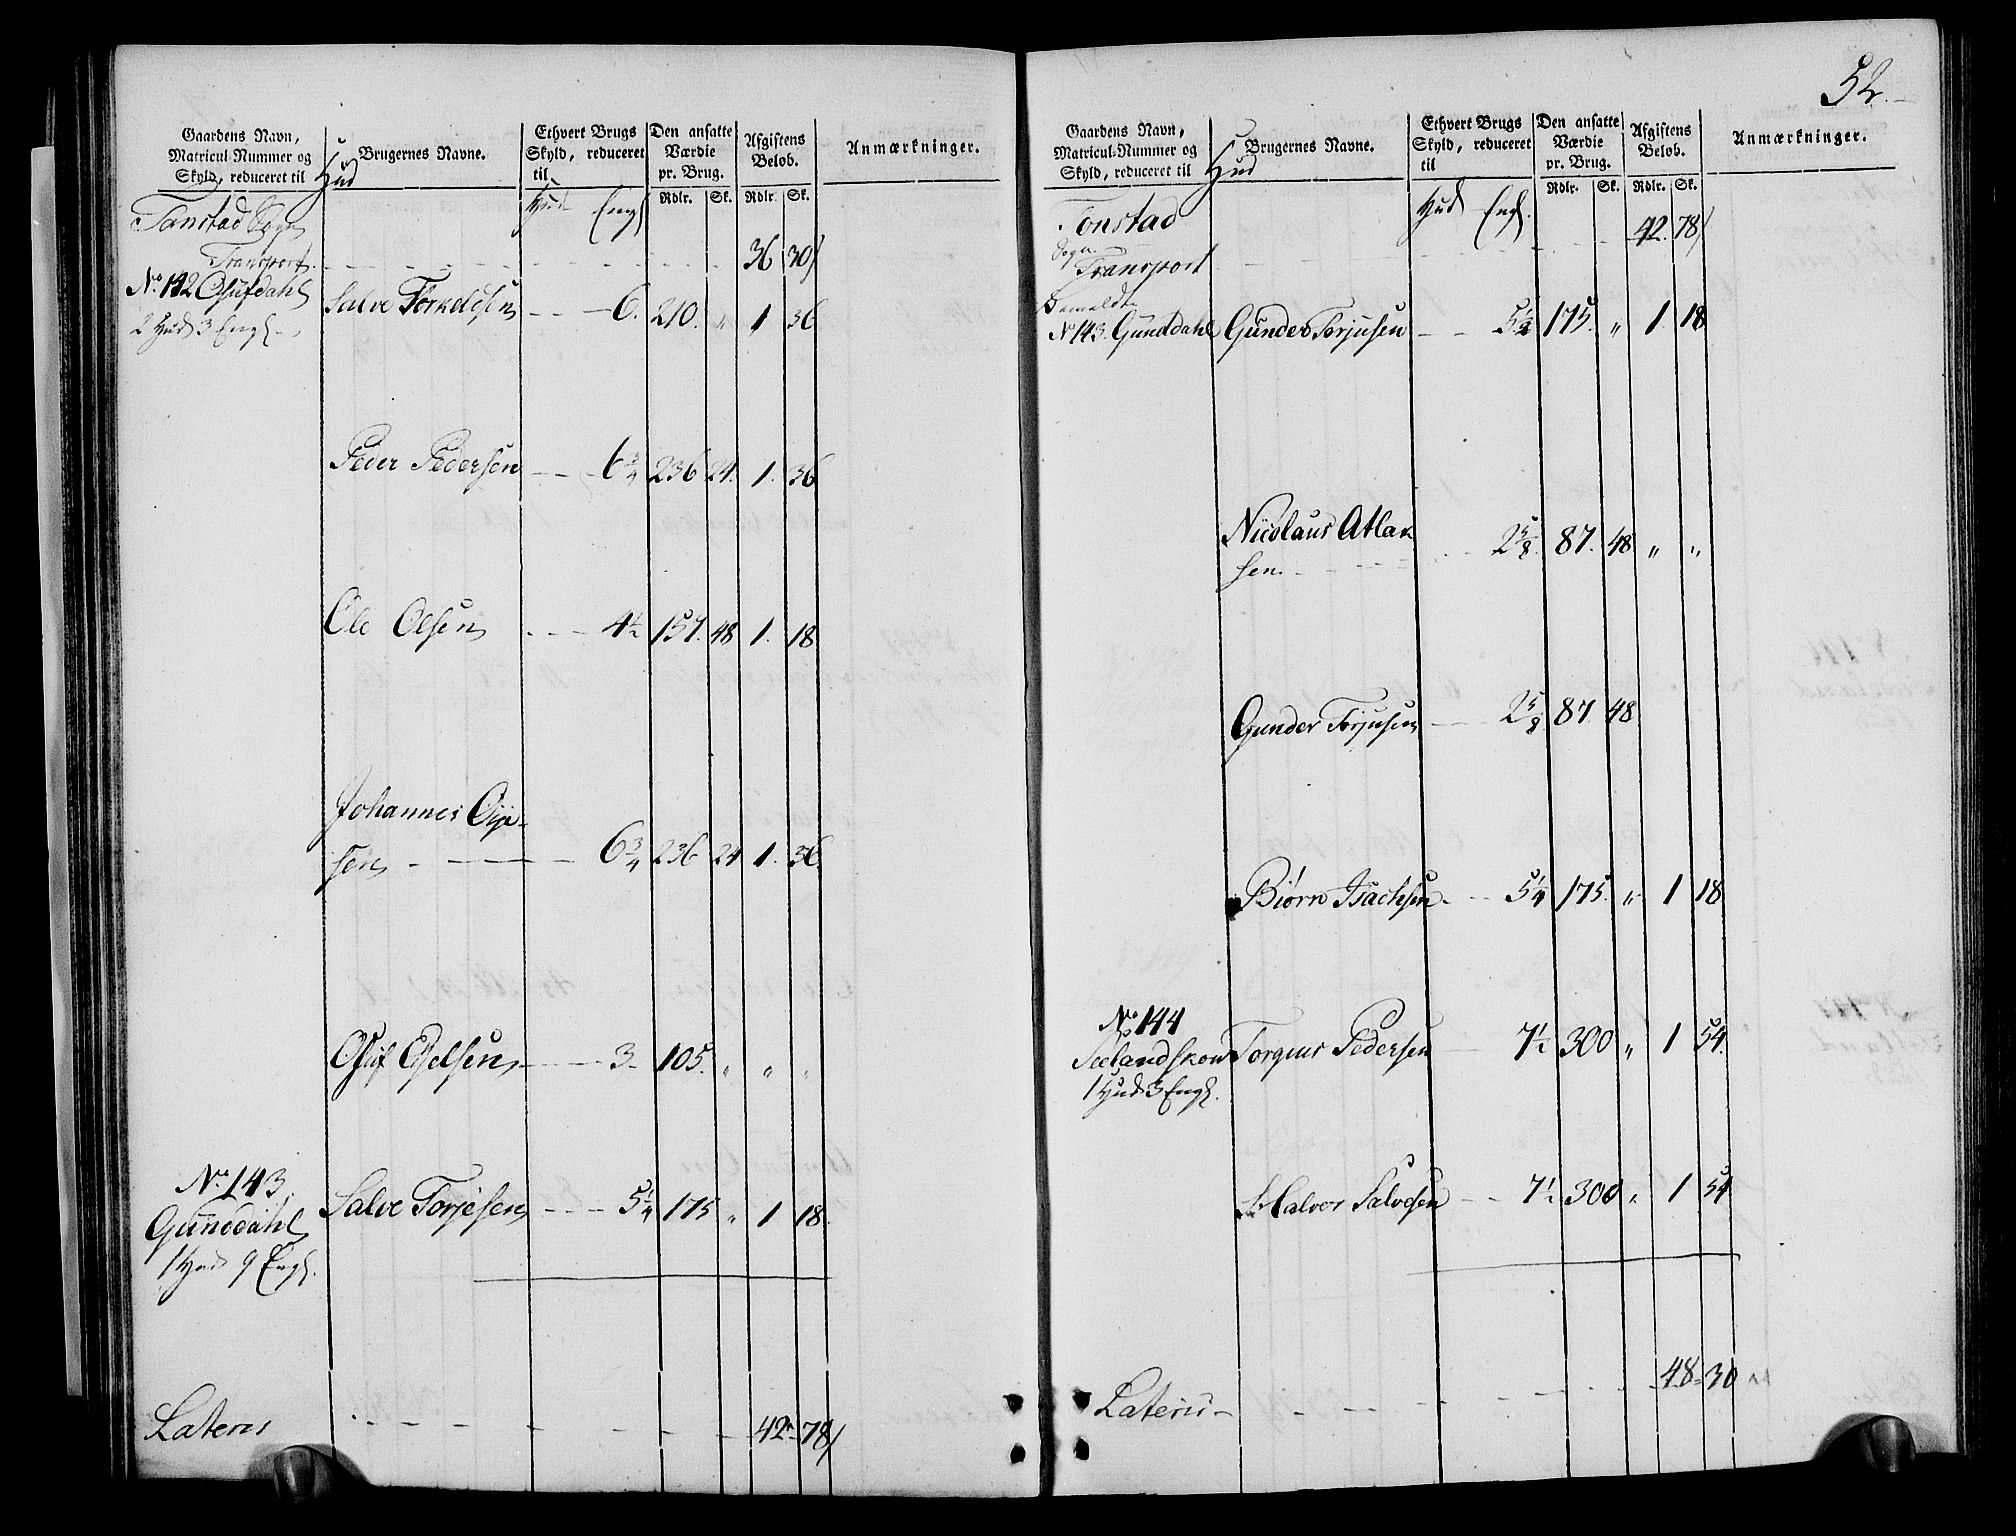 Gaardens Navn, Matricul-Nummer og Skyld, reduceret til Hud
Brugernes Navne.
Ethvert Brugs Skyld, reduceret til
Den ansatte Værdie pr. Brug.
Afgiftens Beløb.
Anmærkninger.
Hud Engl Rdlr. Sk. Rdlr. Sk.
Tonstad Sogn
Transport 36 30
No. 142 Osufdahl Salve Torkelsen 6. 210. „ 1 36
2 Hud 3 Engl
Peder Pedersen 6 3/4 236 24. 1. 36
Ole Olsen 4 1/2 157. 48 1. 18
Johannes
sen 6 3/4 236 24 1. 36.
Osuf Eselsen 3. 105. „ „ „
No. 143. Salve Torjesen 5 1/4 175 „ 1 18.
Gunddahl
1 Hud 9 Engl.
Lateris 42 78
52.
Gaardens Navn, Matricul-Nummer og Skyld, reduceret til Hud
Brugernes Navne.
Ethvert Brugs Skyld, reduceret til
Den ansatte Værdie pr. Brug.
Afgiftens Beløb.
Anmærkninger.
Hud Engl. Rdlr. Sk. Rdlr. Sk.
Tonstad 42. 78
Sogn
Transport
Bemeldte
No 143. Gunddahl Gunder Torjusen 5 1/4 175. „ 1. 18
Nicolaus Atlak
sen. 2 5/8 87. 48 „ „
Gunder Torjusen 2 5/8 87. 48
Biørn Isachsen 5 1/4 175. „ 1 18
No. 144
Seelandskow Torgius Pedersen 7 1/2 300 „ 1 54.
1 Hud 3 Engl.
Halvor Salvesen 7 1/2 300 „ 1 54
48 30
Lateris